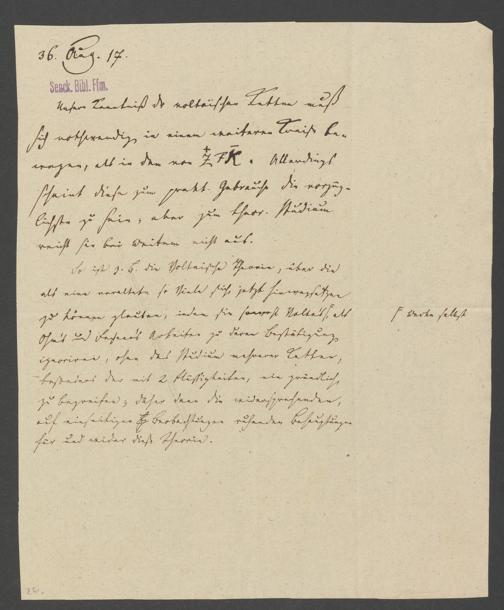 36. Aug. 17.
Senck. Bibl. Ffm.
Unsere Kenntniß der voltaischen Ketten muß
sich nothwendig in einem weiteren Kreise be-
wegen, als in dem von Z F K. Allerdings
scheint diese zum prakt. Gebrauche die vorzüg-
lichste zu sein, aber zum theor. Studium
reicht sie bei weitem nicht aus.
So ist z. B. die Voltaische Theorie, über die
als eine veraltete so Viele sich jetzt hinwegsetzen
zu können glauben, indem sie sowost Volta's als
Ohm's und Fechner's Arbeiten zu deren Bestätigung
ignoriren, ohne das Studium mehrerer Ketten,
besonders der mit 2 Flüssigkeiten, nie gründlich
zu begreifen; daher denn die widersprechenden,
auf einseitigen Beobachtungen ruhenden Behauptungen
für und wider diese Theorie.
F Werke selbst